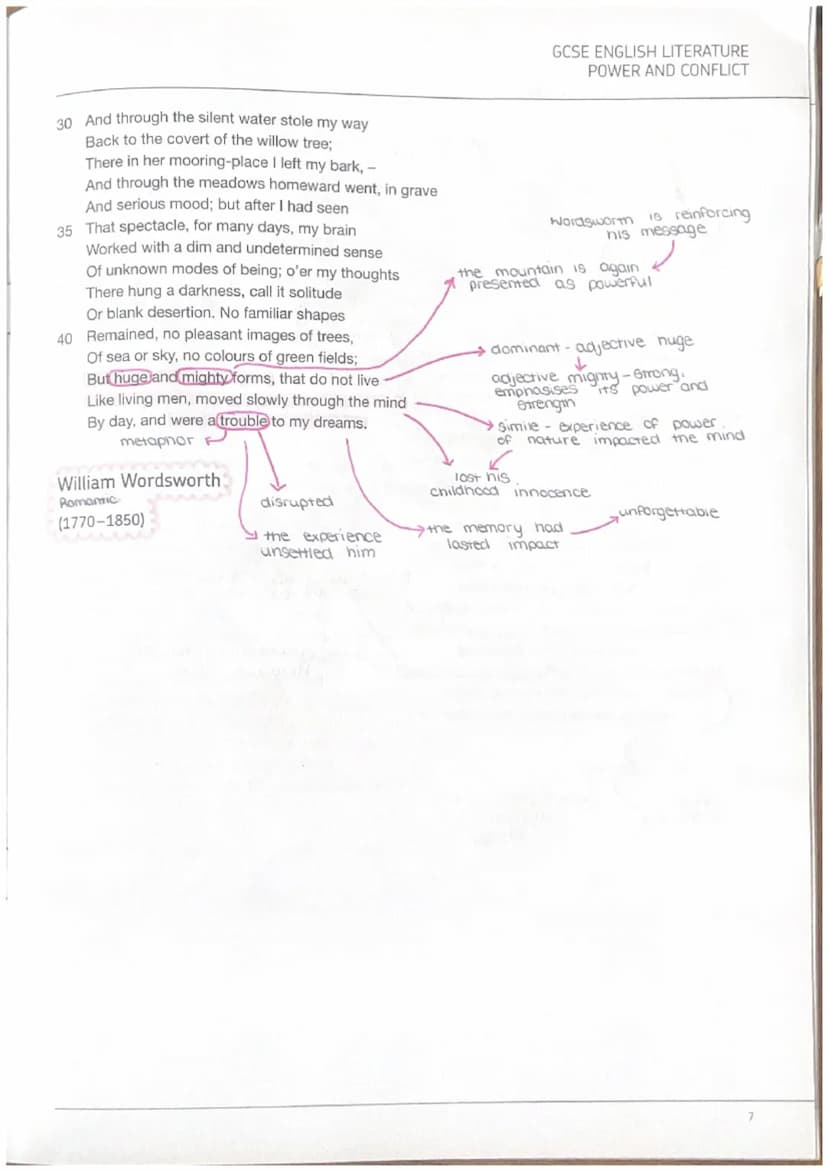 GCSE ENGLISH LITERATURE
POWER AND CONFLICT
30 And through the silent water stole my way
Back to the covert of the willow tree;
There in her mooring-place I left my bark, –
And through the meadows homeward went, in grave
And serious mood; but after I had seen
35 That spectacle, for many days, my brain
Worked with a dim and undetermined sense
Of unknown modes of being; o'er my thoughts
There hung a darkness, call it solitude
Or blank desertion. No familiar shapes
40 Remained, no pleasant images of trees,
Of sea or sky, no colours of green fields;
But huge and mighty forms, that do not live
Like living men, moved slowly through the mind
By day, and were a trouble to my dreams.
Wordsworth is reinforcing
his message
the mountain is again
presented as powerful
dominant - adjective huge
adjective mighty - strong,
emphasises its power and
strength
simile - experience of power
of nature impacted the mind
lost his
childhood innocence
metaphor
William Wordsworth
Romantic
(1770–1850)
disrupted
the experience
unsettled him
the memory had
lasted impact
unforgettable
7